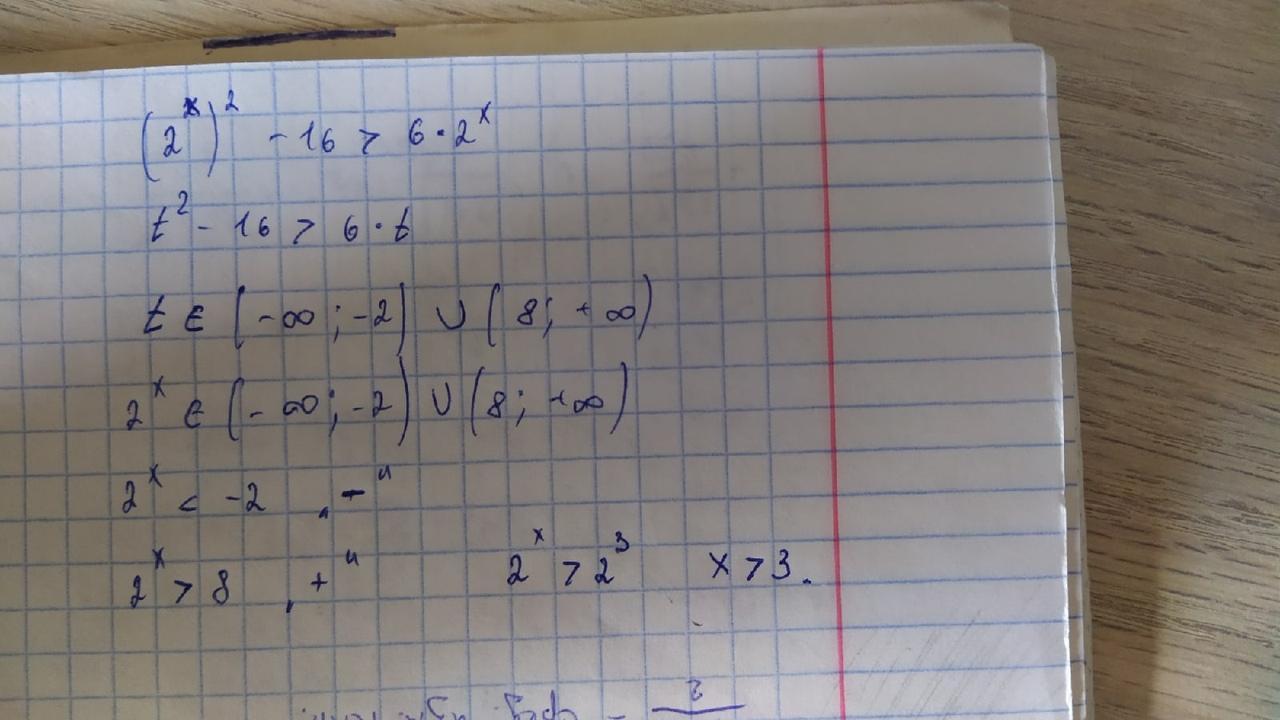 (2^x)^2 - 16 > 6 · 2^x
t^2 - 16 > 6 · t
t ∈ (-∞; -2) ∪ (8; +∞)
2^x ∈ (-∞; -2) ∪ (8; +∞)
2^x < -2 „-"
2^x > 8 „+" 2^x > 2^3 x > 3.